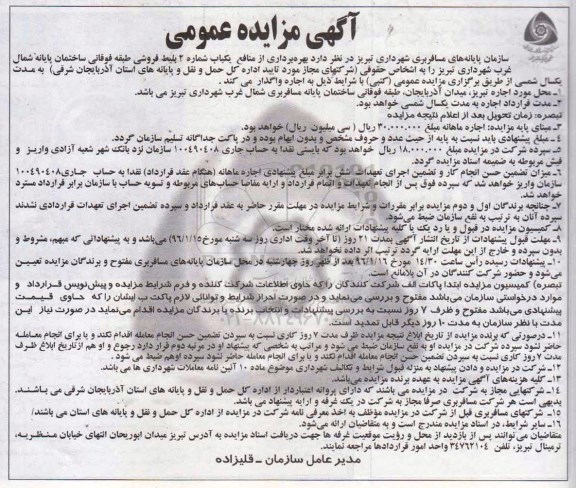 آگهی مزایده عمومی
سازمان پایانه‌های مسافربری شهرداری تبریز در نظر دارد بهره‌برداری از منافع یکباب شماره ۲ بلیط فروشی طبقه فوقانی ساختمان پایانه شمال
غرب شهرداری تبریز را به اشخاص حقوقی (شرکتهای مجاز مورد تایید اداره کل حمل و نقل و پایانه های استان آذربایجان شرقی) به مدت
یکسال شمسی از طریق برگزاری مزایده عمومی (کتبی) با شرایط ذیل به اجاره واگذار می کند.
۱- محل مورد اجاره تبریز، میدان آذربایجان، طبقه فوقانی ساختمان پایانه مسافربری شمال غرب شهرداری تبریز می باشد.
۲- مدت قرارداد اجاره به مدت یکسال شمسی خواهد بود.
تبصره: زمان تحویل بعد از اعلام نتیجه مزایده
۳- مبنای پایه مزایده: اجاره ماهانه مبلغ ۳۰.۰۰۰.۰۰۰ ریال (سی میلیون ریال) خواهد بود.
۴- مبلغ پیشنهادی باید نسبت به پایه از حیث عدد و حروف مشخص و بدون ابهام بوده و در پاکت جداگانه تسلیم سازمان گردد.
۵- سپرده شرکت در مزایده مبلغ ۱۸.۰۰۰.۰۰۰ ریال خواهد بود که بایستی نقدا به حساب جاری ۱۰۰۴۹۰۴۰۸ سازمان نزد بانک شهر شعبه آزادی واریز و
فیش مربوطه به ضمیمه اسناد مزایده گردد.
۶- میزان تضمین حسن انجام کار و تضمین اجرای تعهدات شش برابر مبلغ پیشنهادی اجاره ماهانه (هنگام عقد قرارداد) نقدا به حساب جاری ۱۰۰۴۹۰۴۰۸
سازمان واریز خواهد شد که سپرده فوق پس از انجام تعهدات و اتمام قرارداد و ارایه مفاصا حساب‌های مربوطه و تسویه حساب با سازمان برابر قرارداد مسترد
خواهد شد.
۷- چنانچه برندگان اول و دوم مزایده برابر مقررات و شرایط مزایده در مهلت مقرر حاضر به عقد قرارداد و سپرده تضمین اجرای تعهدات قراردادی نشدند
سپرده آنان به ترتیب به نفع سازمان ضبط می‌شود.
۸- کمیسیون مزایده در قبول و یا رد یک یا کلیه پیشنهادات ارائه شده مختار است.
۹- مهلت قبول پیشنهادات از تاریخ انتشار آگهی بمدت ۲۱ روز (تا آخر وقت اداری روز سه شنبه مورخ ۹۶/۱/۱۵) می‌باشد و به پیشنهاداتی که مبهم، مشروط و
بدون سپرده و خارج از این مهلت ارائه گردد ترتیب اثر داده نخواهد شد.
۱۰- پیشنهادات رسیده رأس ساعت ۱۴/۳۰ مورخ ۹۶/۱/۱۶ بعد از ظهر روز چهارشنبه در محل سازمان پایانه‌های مسافربری مفتوح و برندگان مزایده تعیین
می‌شود و حضور شرکت کنندگان در آن بلامانع است.
تبصره) کمیسیون مزایده ابتدا پاکات الف شرکت کنندگان را که حاوی اطلاعات شرکت کننده و فرم شرایط مزایده و پیش‌نویس قرارداد و
موارد درخواستی سازمان می‌باشد مفتوح و بررسی می‌نماید و در صورت احراز شرایط و توانائی لازم پاکت ب ایشان را که حاوی قیمت
پیشنهادی می‌باشد مفتوح و ظرف ۷ روز نسبت به بررسی پیشنهادات و انتخاب برنده یا برندگان مزایده اقدام می‌نماید در صورت نیاز این
مدت با نظر سازمان به مدت ۱۰ روز دیگر قابل تمدید است.
۱۱- درصورتی که برنده مزایده از تاریخ ابلاغ نتیجه مزایده ظرف مدت ۷ روز کاری نسبت به سپردن تضمین حسن انجام معامله اقدام نکند و یا برای انجام معامله
حاضر نشود سپرده شرکت در مزایده او به نفع سازمان ضبط می شود و مراتب به شخصی که پیشنهاد او در مرتبه دوم قرار دارد رجوع و او هم از تاریخ ابلاغ ظرف
مدت ۷ روز کاری نسبت به سپردن تضمین حسن انجام معامله اقدام نکند و یا برای انجام معامله حاضر نشود سپرده او هم ضبط می شود.
۱۲- شرکت در مزایده و دادن پیشنهاد به منزله قبول شرایط و تکالیف شهرداری موضوع ماده ۱۰ آئین نامه معاملات شهرداری ها می باشد.
۱۳- کلیه هزینه‌های آگهی مزایده به عهده برنده مزایده می‌باشد.
۱۴- شرکتهایی مجاز به شرکت در مزایده می باشند که دارای پروانه اعتباردار از اداره کل حمل و نقل و پایانه های استان آذربایجان شرقی می باشند.
بدیهی است هر شرکت مسافربری صرفا مجاز به شرکت در یک غرفه و ارایه پیشنهاد می باشد.
۱۵- شرکتهای مسافربری قبل از شرکت در مزایده موظف به اخذ معرفی نامه شرکت در مزایده از اداره کل حمل و نقل و پایانه های استان می باشند/
۱۶- سایر شرایط، در اسناد مزایده مندرج است و به متقاضیان ارائه می‌شود.
متقاضیان می‌توانند پس از بازدید از محل و رؤیت موقعیت غرفه ها جهت دریافت اسناد مزایده به آدرس تبریز میدان ابوریحان انتهای خیابان منظریه،
ترمینال تبریز، تلفن ۳۴۷۶۲۱۰۴ واحد امور قراردادها مراجعه نمایند.
مدیر عامل سازمان - قلیزاده